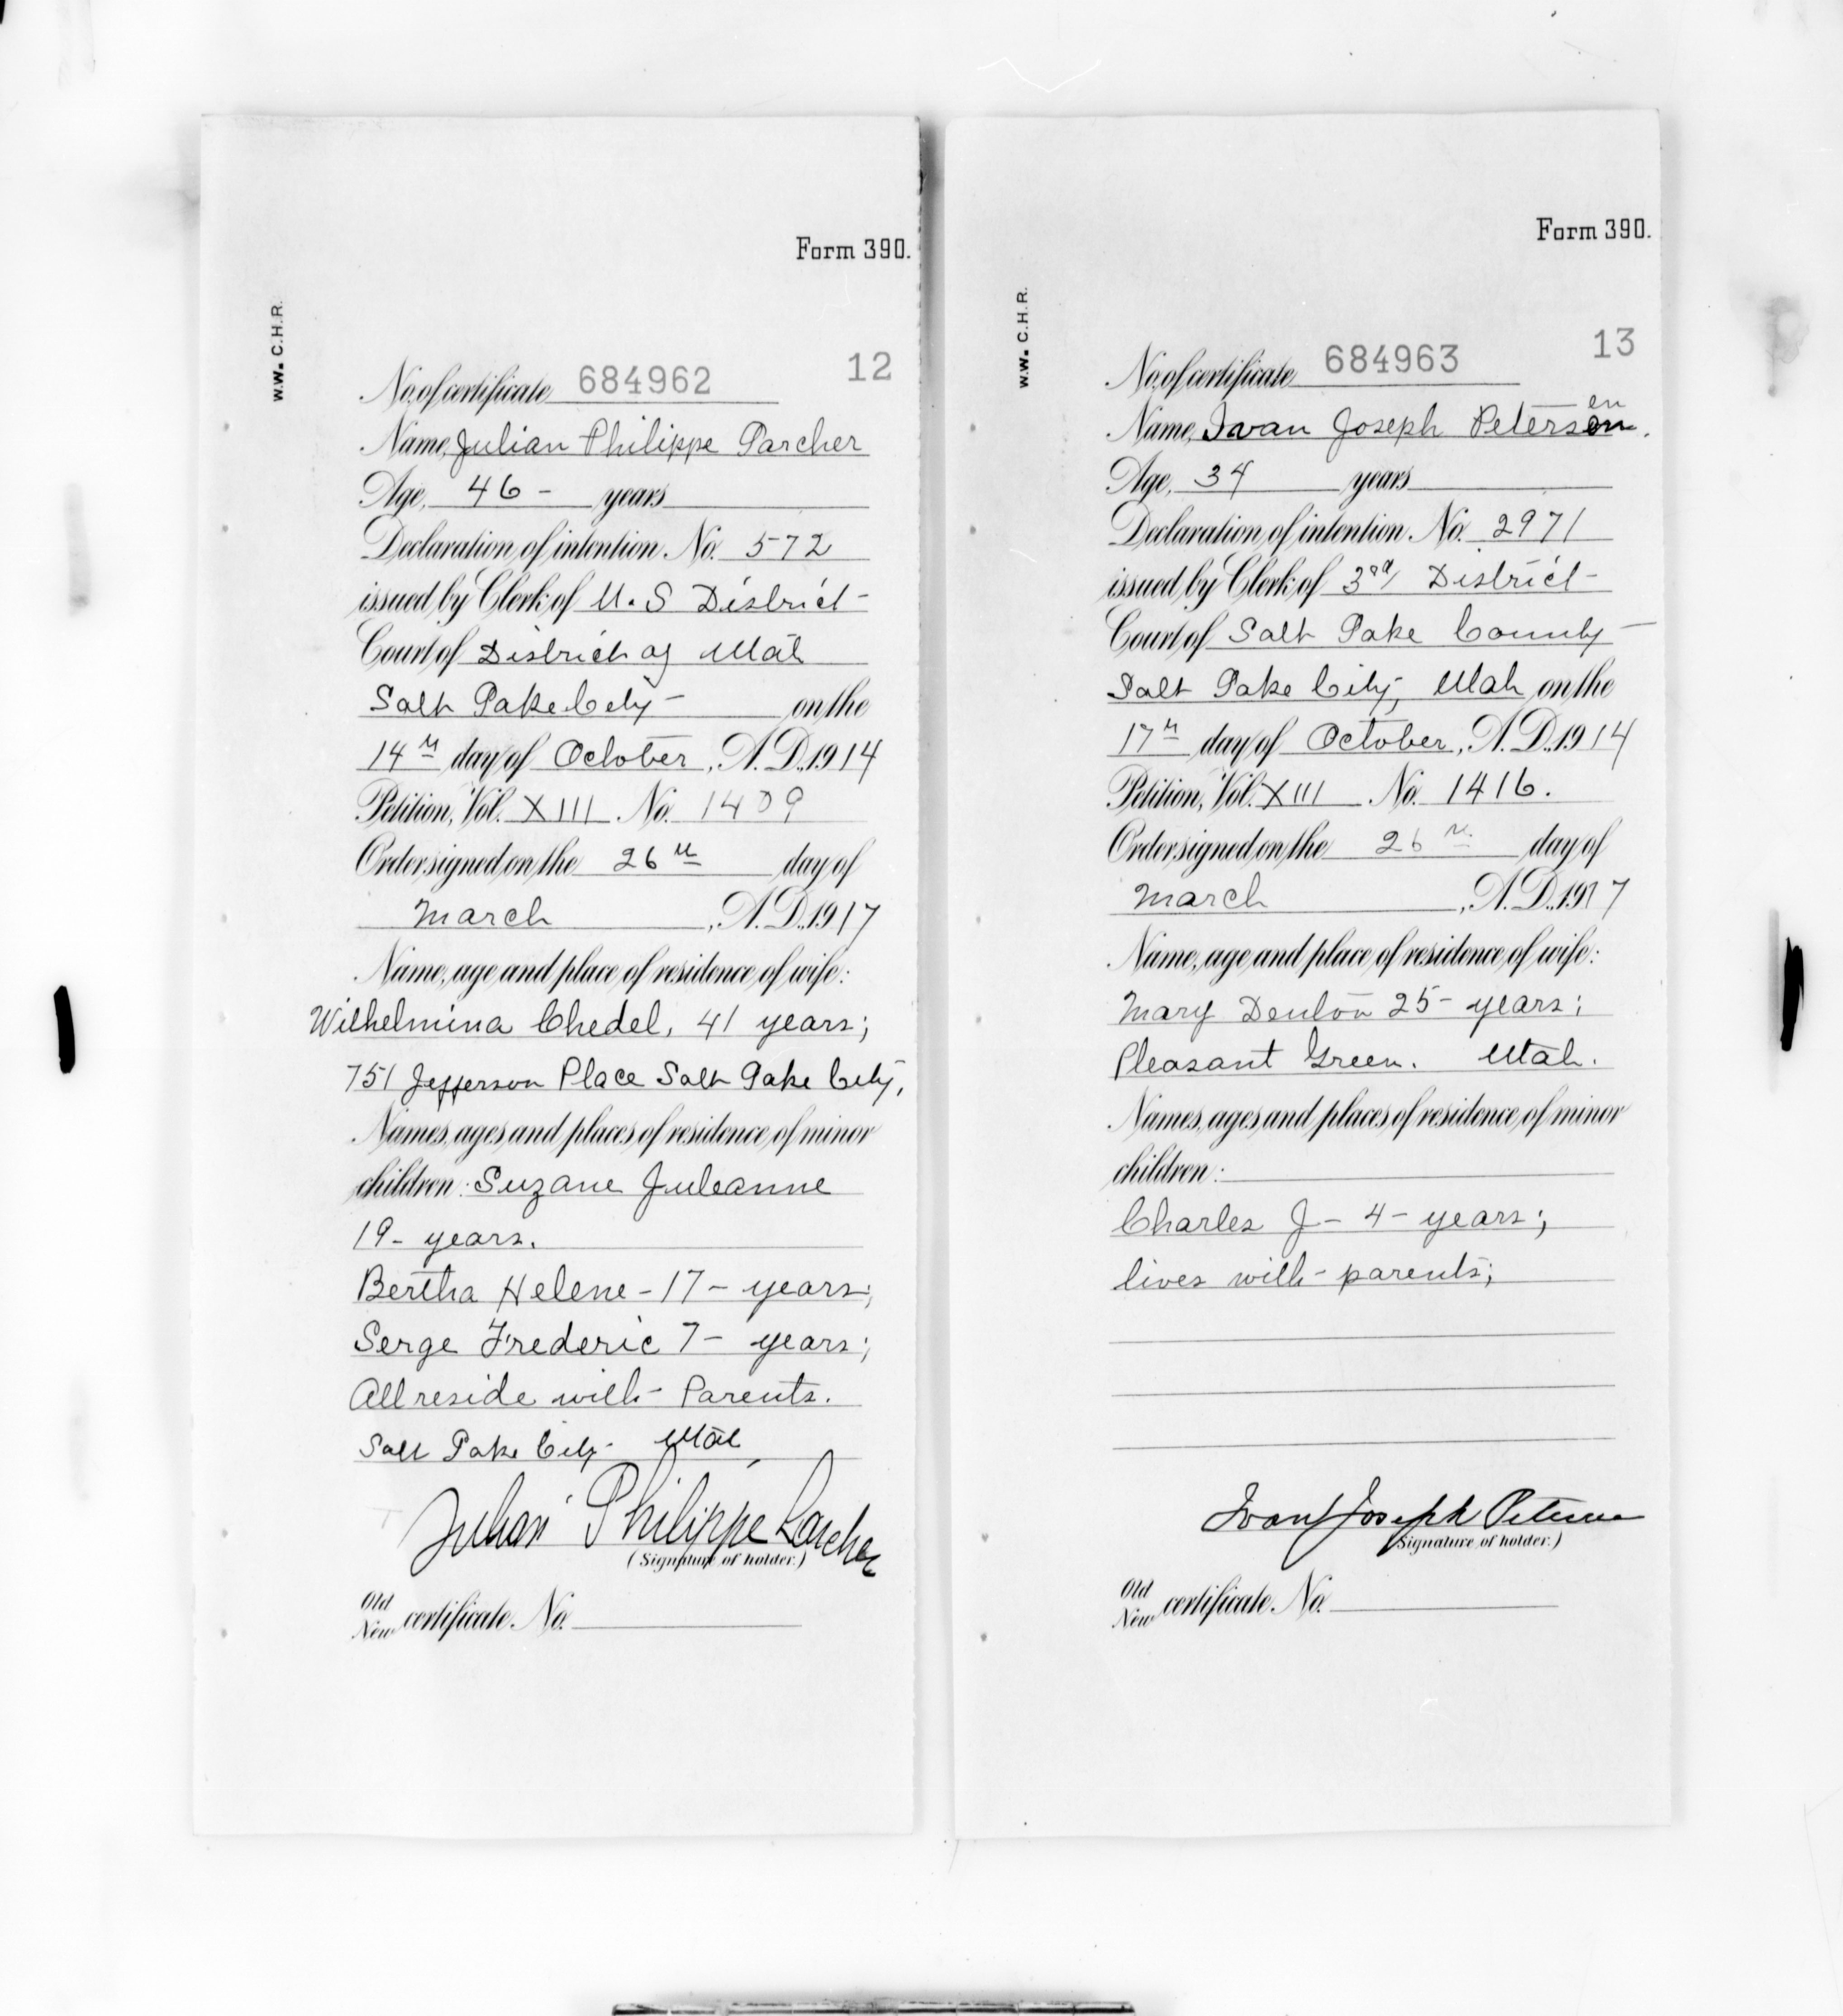 Form 390.
W.W. C.H.R.
12
No. of certificate 684962
Name, Julian Philippe Larcher
Age, 46 - years
Declaration of intention No. 572
issued by Clerk of U.S District
Court of District of Utah
Salt Lake City - on the
14th day of October, A.D. 1914
Petition, Vol. XIII No. 1409
Order signed on the 26th day of
March, A.D. 1917
Name, age and place of residence of wife:
Wilhelmina Chedel, 41 years;
751 Jefferson Place Salt Lake City,
Names, ages and places of residence of minor
children: Suzane Juleanne
19 - years.
Bertha Helene - 17 - years;
Serge Frederic 7 - years;
All reside with Parents.
Salt Lake City - Utah
Julian Philippe Larcher
(Signature of holder.)
Old
New certificate No.
Form 390.
W.W. C.H.R.
13
No. of certificate 684963
en
Name, Ivan Joseph Peterson.
Age, 34 years
Declaration of intention No. 2971
issued by Clerk of 3rd District -
Court of Salt Lake County -
Salt Lake City, Utah on the
17th day of October, A.D. 1914
Petition, Vol. XIII No. 1416.
Order signed on the 26th day of
March, A.D. 1917
Name, age and place of residence of wife:
Mary Denton 25 - years;
Pleasant Green. Utah.
Names, ages and places of residence of minor
children:
Charles J - 4 - years;
lives with - parents;
Ivan Joseph Petersen
(Signature of holder.)
Old
New certificate No.